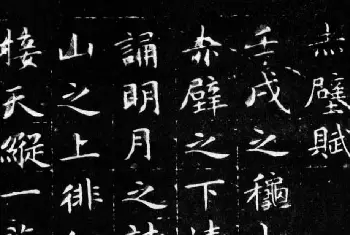 赤壁賦
壬戌之穐
赤壁之下清
誦明月之詩
山之上徘
接天縱一